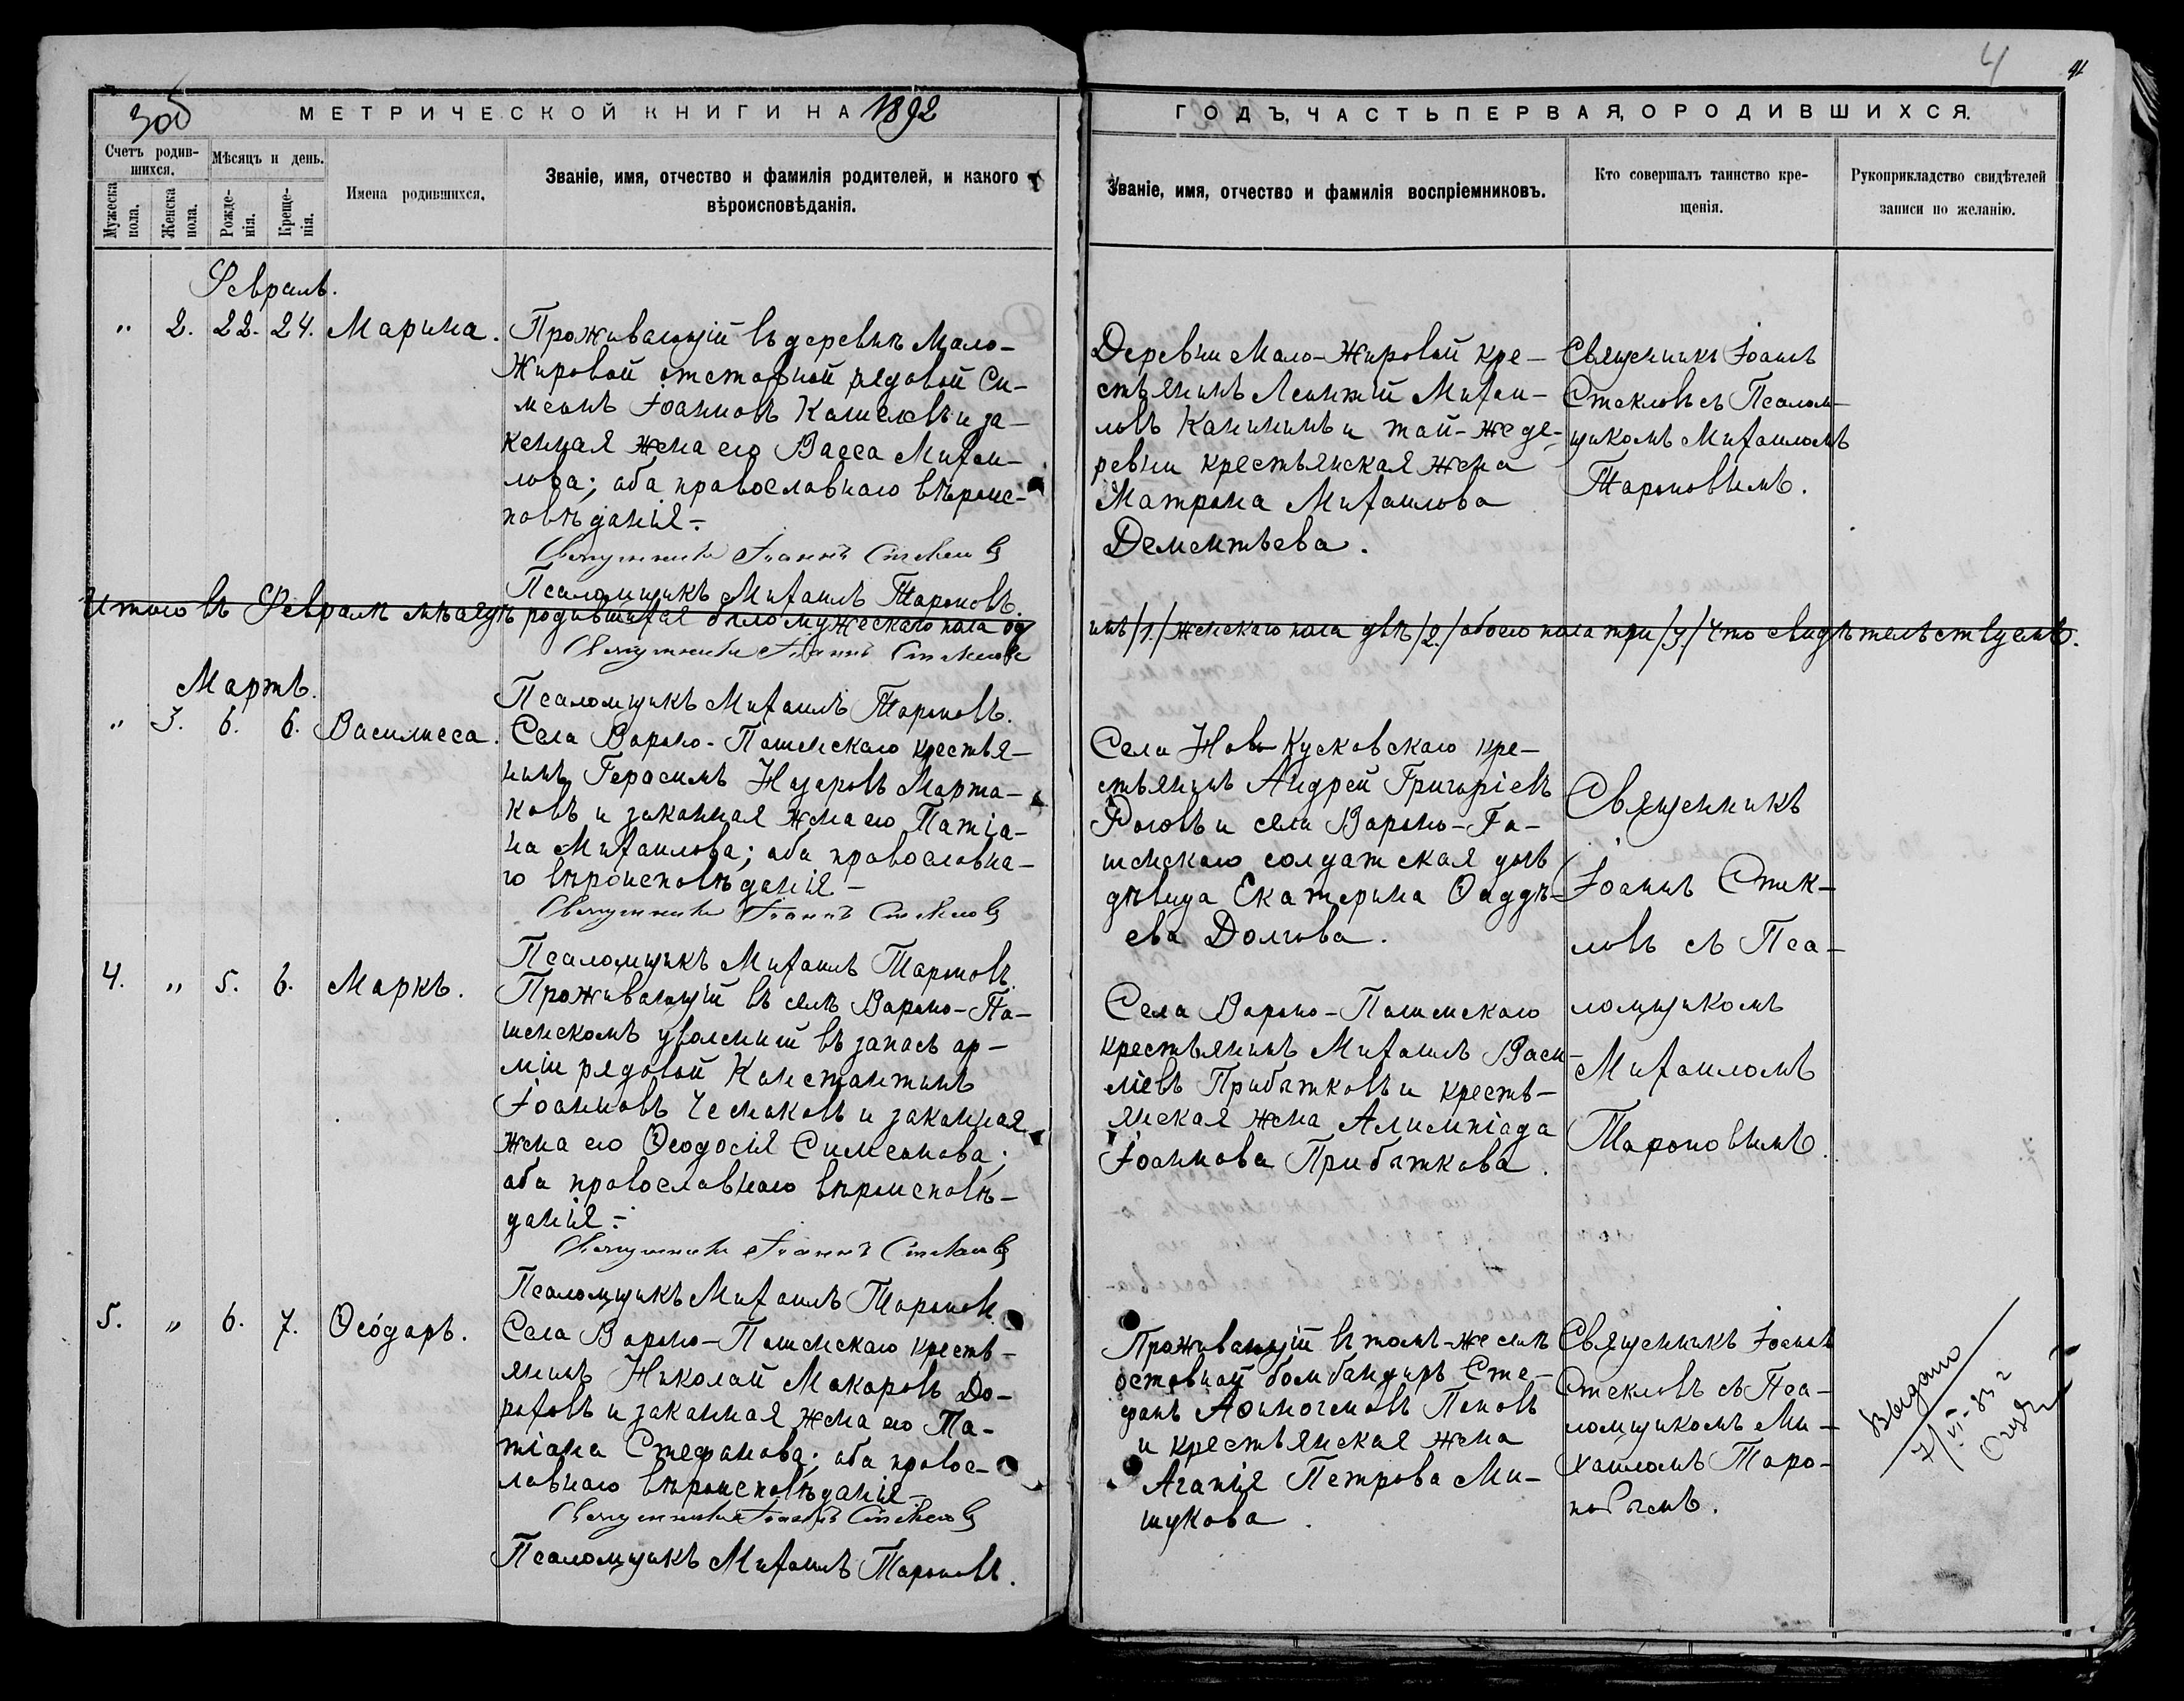 4
41
306
МЕТРИЧЕСКОЙ КНИГИ НА 1892
ГОДЪ, ЧАСТЬ ПЕРВАЯ, О РОДИВШИХСЯ.
Счетъ родив-
шихся.
Мѣсяцъ и день.
Мужеска
пола.
Женска
пола.
Рожде-
нія.
Креще-
нія.
Имена родившихся.
Званіе, имя, отчество и фамилія родителей, и какого
вѣроисповѣданія.
Званіе, имя, отчество и фамилія воспріемниковъ.
Кто совершалъ таинство кре-
щенія.
Рукоприкладство свидѣтелей
записи по желанію.
Февраль.
" 2. 22. 24. Марина.
Проживающій въ деревнѣ Мало-
Жировой отставной рядовой Си-
меонъ Іоанновъ Кошелевъ и за-
конная жена его Васса Михаи-
лова; оба православнаго вѣроис-
повѣданія.-
Священникъ Іоаннъ Стекловъ
Псаломщикъ Михаилъ Тароновъ.
Деревни Мало-Жировой кре-
стьянинъ Леонтій Михаи-
ловъ Канининъ и той-же де-
ревни крестьянская жена
Матрона Михаилова
Дементьева.
Священникъ Іоаннъ
Стекловъ съ Псалом-
щикомъ Михаиломъ
Тароновымъ.
Итого въ Февралѣ мѣсяцѣ родившихся было мужескаго пола од
инъ /1./ женскаго пола двѣ /2./ обоего пола три /3./ Что свидѣтельствуемъ.
Священникъ Іоаннъ Стекловъ
Псаломщикъ Михаилъ Тароновъ.
Мартъ.
" 3. 6. 6. Василисса.
Села Вороно-Пашенскаго крестья-
нинъ Герасимъ Назаровъ Марта-
ковъ и законная жена его Татіа-
на Михаилова; оба православна-
го вѣроисповѣданія -
Священникъ Іоаннъ Стекловъ
Псаломщикъ Михаилъ Тароновъ.
Села Ново-Кусковскаго кре-
стьянинъ Андрей Григоріевъ
Роговъ и села Вороно-Па-
шенскаго солдатская дочь
дѣвица Екатерина Ѳаддѣ-
ева Долгова.
Священникъ
Іоаннъ Стек-
ловъ съ Пса-
ломщикомъ
Михаиломъ
Тароновымъ.
4. " 5. 6. Маркъ.
Проживающій въ селѣ Вороно-Па-
шенскомъ уволенный въ запасъ ар-
міи рядовой Константинъ
Іоанновъ Чесноковъ и законная
жена его Ѳеодосія Симеонова;
оба православнаго вѣроисповѣ-
данія.-
Священникъ Іоаннъ Стекловъ
Псаломщикъ Михаилъ Тароновъ.
Села Вороно-Пашенскаго
крестьянинъ Михаилъ Васи-
ліевъ Прибытковъ и кресть-
янская жена Алимпіада
Іоаннова Прибыткова.
5. " 6. 7. Ѳеодоръ.
Села Вороно-Пашенскаго кресть-
янинъ Николай Макаровъ До-
роховъ и законная жена его Та-
тіана Стефанова; оба правос-
лавнаго вѣроисповѣданія -
Священникъ Іоаннъ Стекловъ
Псаломщикъ Михаилъ Тароновъ.
Проживающій въ томъ-же селѣ
оставной бомбандиръ Сте-
фанъ Аѳиногеновъ Поповъ
и крестьянская жена
Агапія Петрова Ми-
шукова.
Священникъ Іоаннъ
Стекловъ съ Пса-
ломщикомъ Ми-
хаиломъ Таро-
новымъ.
Выдано
7/VI-